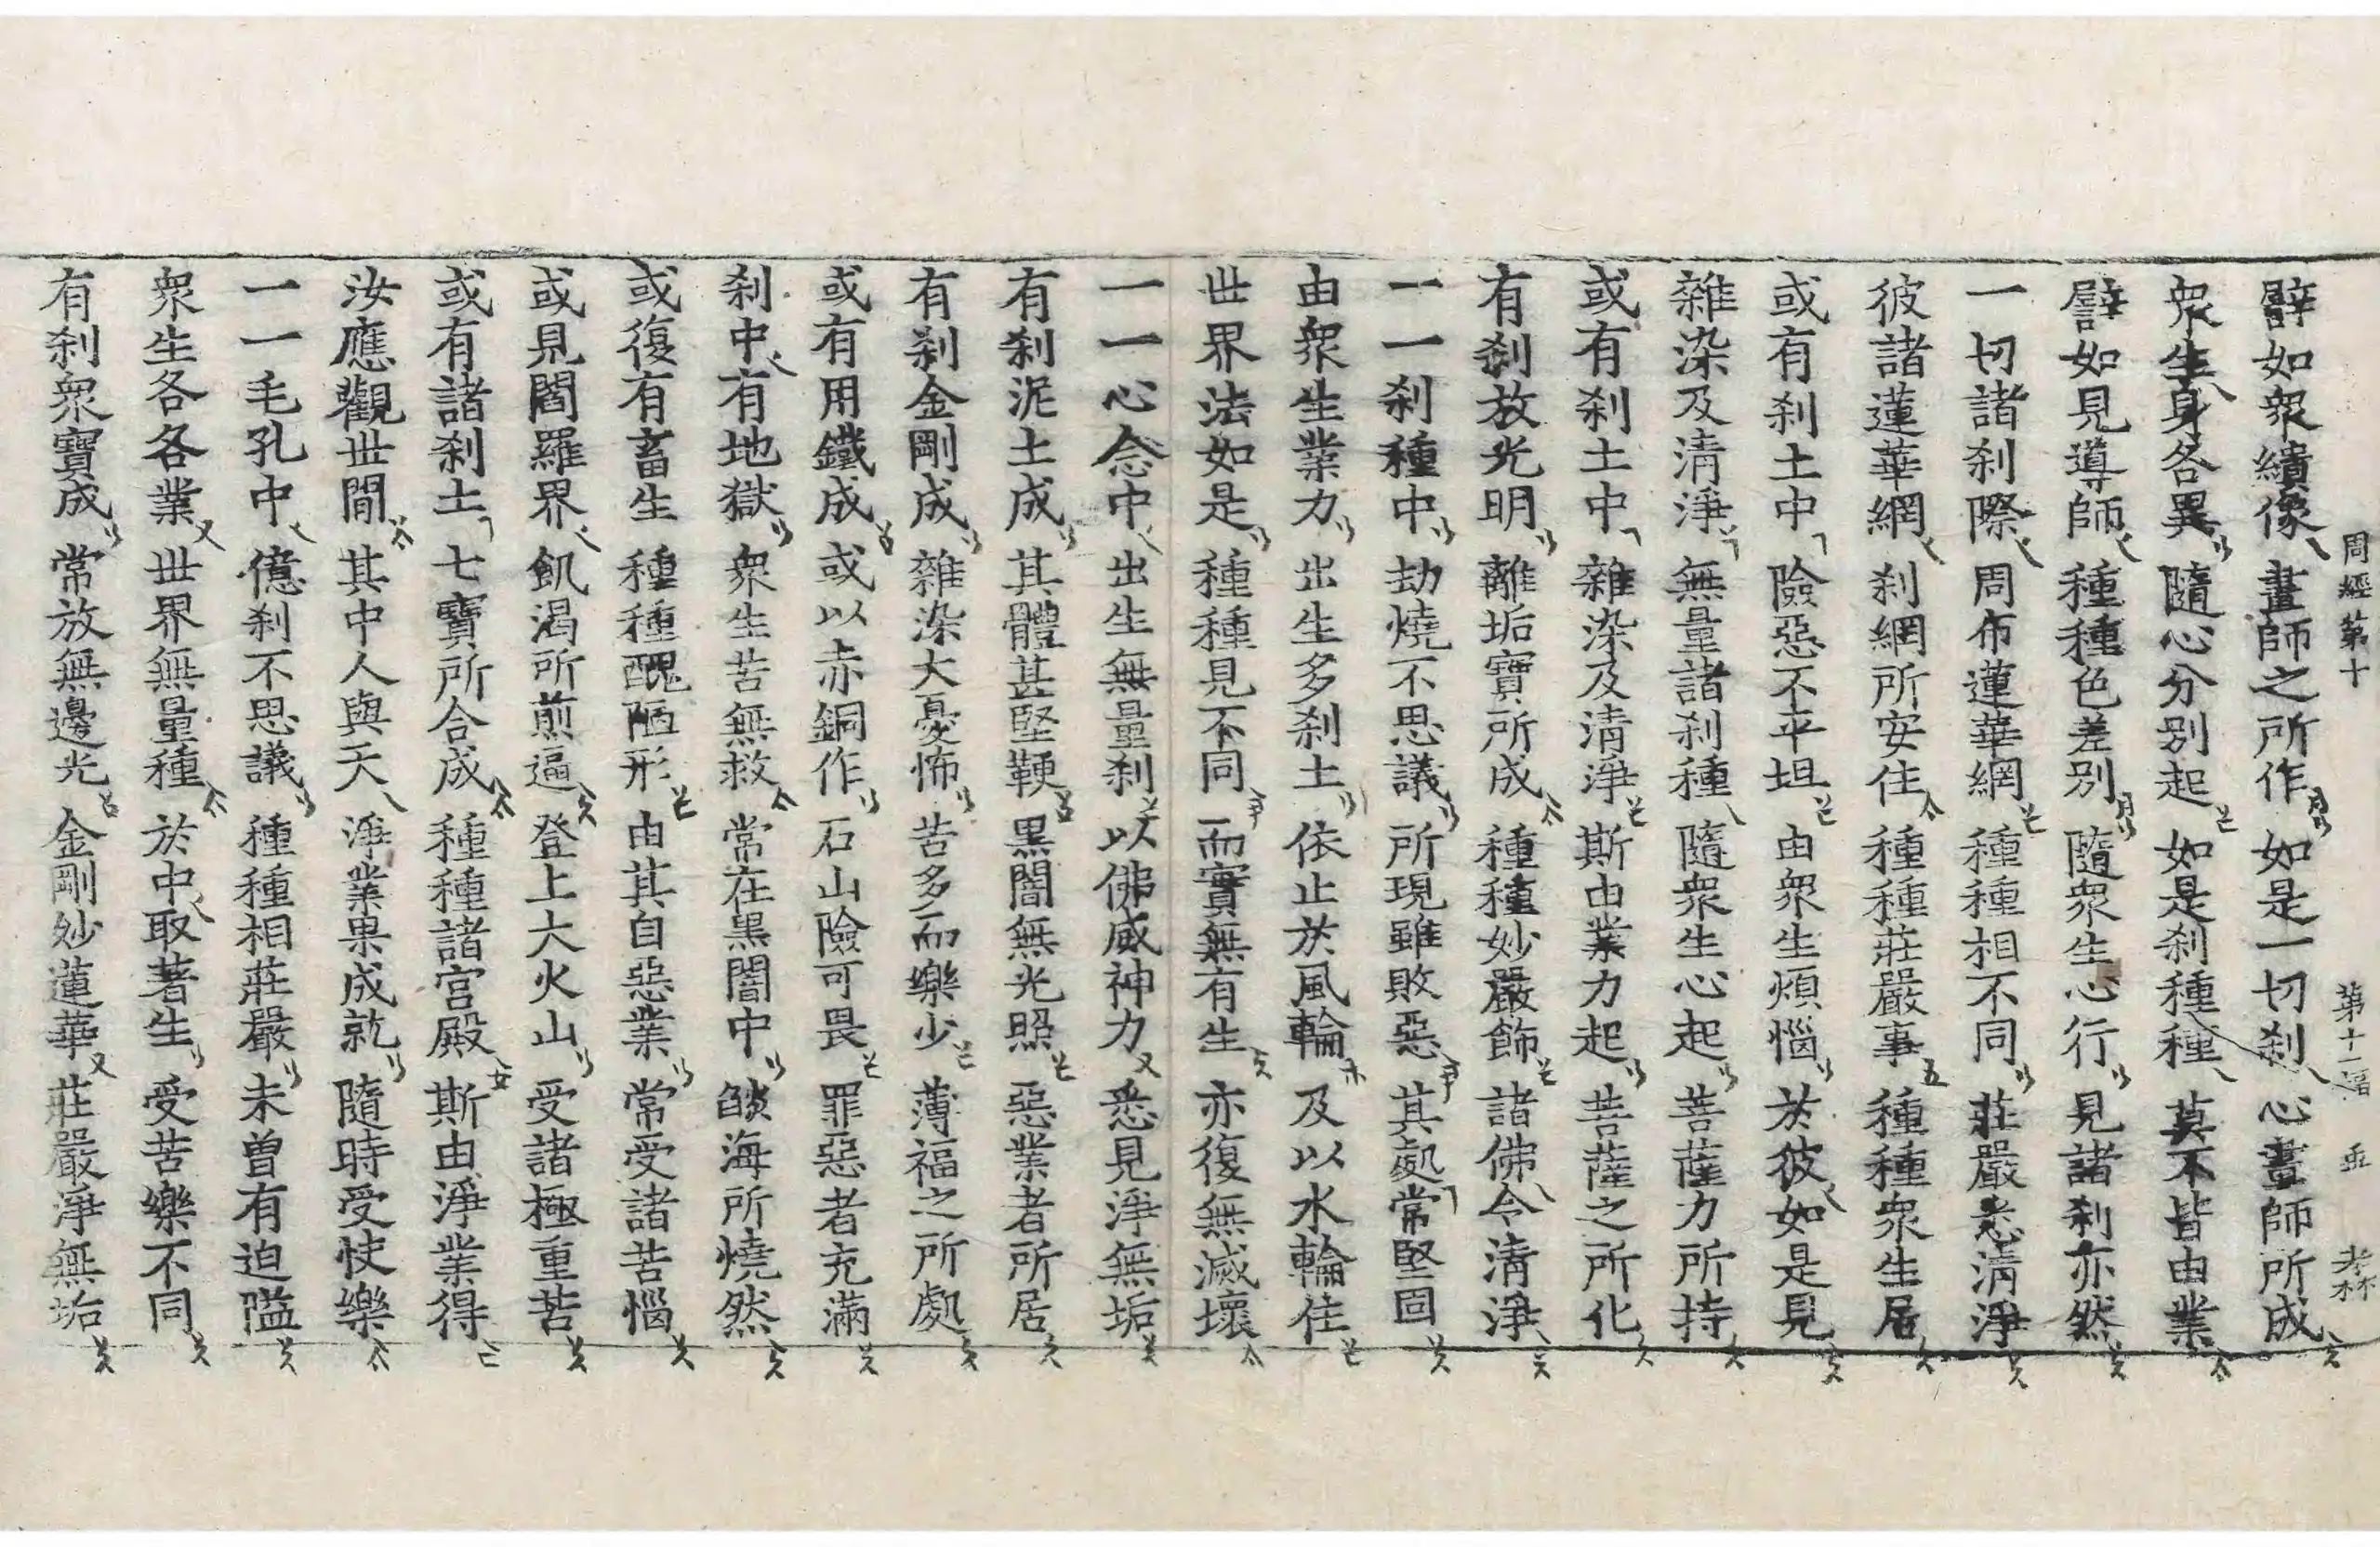 周經第十 第十一 幅
譬如衆繢像 畫師之所作 如是一切刹 心畫師所成
衆生身各異 隨心分別起 如是刹種種 莫不皆由業
譬如見導師 種種色差別 隨衆生心行 見諸刹亦然
一切諸刹際 周布蓮華網 種種相不同 莊嚴悉淸淨
彼諸蓮華網 刹網所安住 種種莊嚴事 種種衆生居
或有刹土中 險惡不平坦 由衆生煩惱 於彼如是見
雜染及淸淨 無量諸刹種 隨衆生心起 菩薩力所持
或有刹土中 雜染及淸淨 斯由業力起 菩薩之所化
有刹放光明 離垢寶所成 種種妙嚴飾 諸佛令淸淨
一一刹種中 劫燒不思議 所現雖敗惡 其處常堅固
由衆生業力 出生多刹土 依止於風輪 及以水輪住
世界法如是 種種見不同 而實無有生 亦復無滅壞
一一心念中 出生無量刹 以佛威神力 悉見淨無垢
有刹泥土成 其體甚堅鞕 黒闇無光照 惡業者所居
有刹金剛成 雜染大憂怖 苦多而樂少 薄福之所處
或有用鐵成 或以赤銅作 石山險可畏 罪惡者充滿
刹中有地獄 衆生苦無救 常在黒闇中 燄海所燒然
或復有畜生 種種醜陋形 由其自惡業 常受諸苦惱
或見閻羅界 飢渴所煎逼 登上大火山 受諸極重苦
或有諸刹土 七寶所合成 種種諸宮殿 斯由淨業得
汝應觀世間 其中人與天 淨業果成就 隨時受快樂
一一毛孔中 億刹不思議 種種相莊嚴 未曾有迫隘
衆生各各業 世界無量種 於中取著生 受苦樂不同
有刹衆寶成 常放無邊光 金剛妙蓮華 莊嚴淨無垢